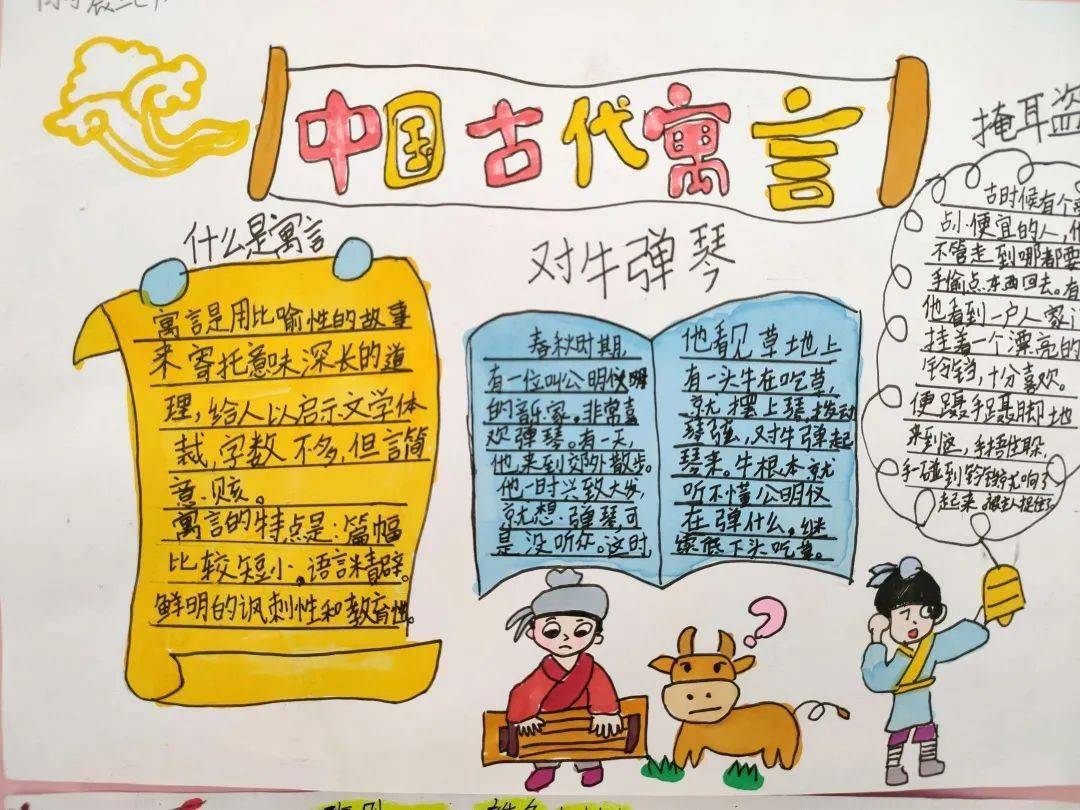 中国古代寓言
什么是寓言
寓言是用比喻性的故事
来寄托意味深长的道
理，给人以启示文学体
裁，字数不多，但言简
意赅。
寓言的特点是：篇幅
比较短小，语言精辟。
鲜明的讽刺性和教育性。
对牛弹琴
春秋时期，
有一位叫公明仪
的音乐家。非常喜
欢弹琴。有一天，
他来到郊外散步。
他一时兴致大发，
就想弹琴，可
是没听众。这时
他看见草地上
有一头牛在吃草，
就摆上琴，拨动
琴弦，对牛弹起
琴来。牛根本就
听不懂公明仪
在弹什么，继
续低下头吃草。
掩耳盗
古时候有个
占小便宜的人，
不管走到哪都要
手偷点东西回去。有
他看到一户人家
挂着一个漂亮的
铃铛，十分喜欢。
便蹑手蹑脚地
来到这，手捂住耳朵，
手碰到铃铛就响了
起来。被主人捉住了。
?